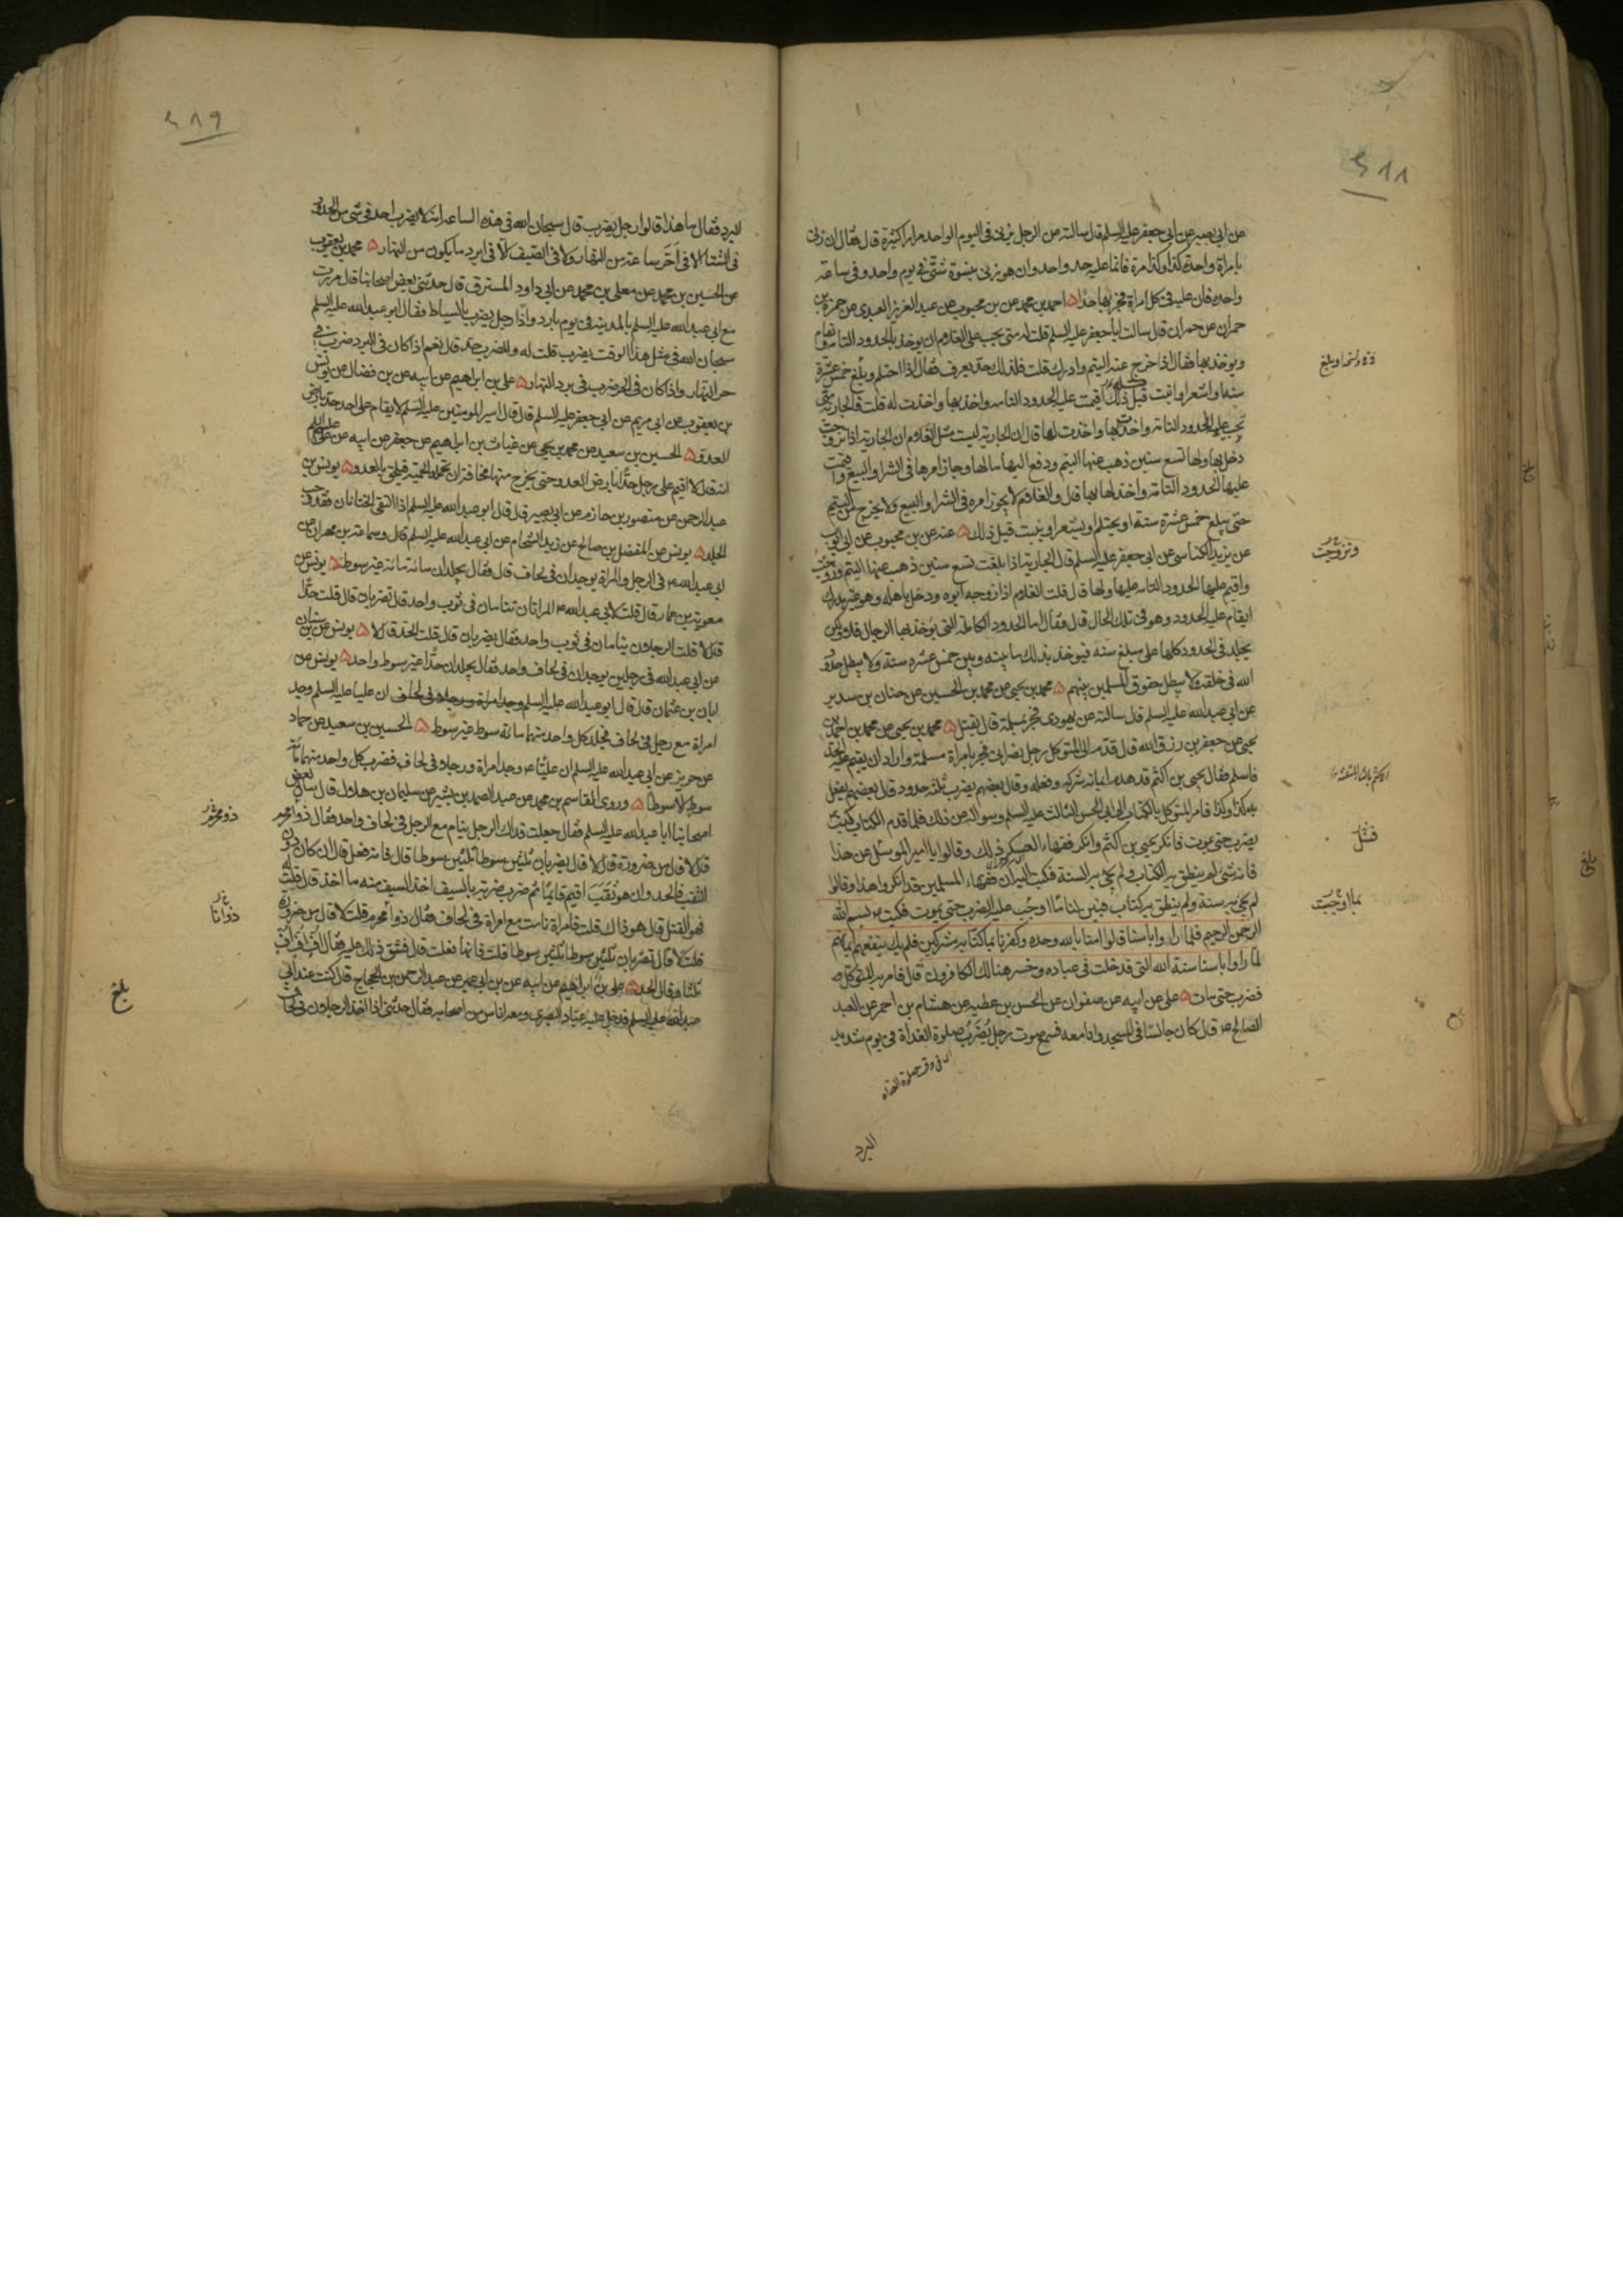 ٤٨٨
عن ابي بصير عن ابي جعفر عليه السلم قال سالته عن الرجل يزنى فى اليوم الواحد مرارا كثيرة قال فقال ان زنى
بامراة واحدة كذا وكذا مرة فانما عليه حد واحد وان هو زنى بنسوة شتى فى يوم واحد وفى ساعة
واحدة فان عليه فى كل امراة فجر بها حدا ۵ احمد بن محمد عن بن محبوب عن عبد العزيز العبدى عن حمزة بن
حمران عن حمران قال سالت ابا جعفر عليه السلم قلت له متى يجب على الغلام ان يوخذ بالحدود التامة وتقام
ويوخذ بها فقال اذا خرج عنه اليتم وادرك قلت فلذلك حد يعرف فقال اذا احتلم وبلغ خمس عشرة
سنة واشعر او انبت قبل ذلك اقيمت عليه الحدود التامة واخذ بها واخذت له قلت فالجارية متى
يجب عليها الحدود التامة واخذت بها واخذت لها قال ان الجارية ليست مثل الغلام ان الجارية اذا تزوجت
دخل بها ولها تسع سنين ذهب عنها اليتم ودفع اليها مالها وجاز امرها فى الشرا والبيع واقيمت
عليها الحدود التامة واخذ لها بها قال والغلام لا يجوز امره فى الشرا والبيع ولا يخرج من اليتم
حتى يبلغ خمس عشرة سنة او يحتلم او يشعر او ينبت قبل ذلك ۵ عنه عن بن محبوب عن ابى ايوب
عن يزيد الكناسى عن ابى جعفر عليه السلم قال الجارية اذا بلغت تسع سنين ذهب عنها اليتم وزوجت
واقيم عليها الحدود التامة عليها ولها قال قلت الغلام اذا زوجه ابوه ودخل باهله وهو غير مدرك
ايقام عليه الحدود وهو فى تلك الحال قال فقال اما الحدود الكاملة التى يوخذ بها الرجال فلا ولكن
يجلد فى الحدود كلها على مبلغ سنه فيوخذ بذلك ما بينه وبين خمس عشره سنة ولا يبطل حدود
الله فى خلقه ولا يبطل حقوق المسلمين بينهم ۵ محمد بن يحيى عن محمد بن الحسين عن حنان بن سدير
عن ابى عبد الله عليه السلم قال سالته عن يهودى فجر بمسلمة قال يقتل ۵ محمد بن يحيى عن محمد بن احمد بن
يحيى عن جعفر بن رزق الله قال قدم الى المتوكل رجل نصرانى فجر بامراة مسلمة واراد ان يقيم عليه الحد
فاسلم فقال يحيى بن اكثم قد هدم ايمانه شركه وفعله وقال بعضهم يضرب ثلثة حدود قال بعضهم يفعل
به كذا وكذا فامر المتوكل بالكتاب الى ابى الحسن الثالث عليه السلم وسواله عن ذلك فلما قدم الكتاب كتب
يضرب حتى يموت فانكر يحيى بن اكثم وانكر فقهاء العسكر ذلك وقالوا يا امير المو سئل عن هذا
فانه شى لم ينطق به الكتاب ولم يجئ به السنة فكتب اليه ان فقهاء المسلمين قد انكروا هذا وقالوا
لم يجئ به سنة ولم ينطق به كتاب فبين لنا ما اوجب عليه الضرب حتى يموت فكتب بسم الله
الرحمن الرحيم فلما راوا باسنا قالوا امنا بالله وحده وكفرنا بما كنا به مشركين فلم يك ينفعهم ايمانهم
لما راوا باسنا سنة الله التى قد خلت فى عباده وخسر هنالك الكافرون قال فامر به المتوكل
فضرب حتى مات ۵ على عن ابيه عن صفوان عن الحسن بن عطيه عن هشام بن احمر عن العبد
الصالح قال كان جالسا فى المسجد وانا معه فسمع صوت رجل يضرب صلوة الغداة فى يوم شديد
اى فى وقت صلوة الغداة
البرد
وتزوجت
فسئل
بما اوجبت
٤٨٩
البرد فقال ما هذا قالوا رجل يضرب قال سبحان الله فى هذه الساعة انه لا يضرب احد فى شى من الحدود
فى الشتا الا فى اخر ساعة من النهار ولا فى الصيف الا فى ابرد ما يكون من النهار ۵ محمد بن يعقوب
عن الحسين بن محمد عن معلى بن محمد عن ابى داود المسترق قال حدثنى بعض اصحابنا قال مررت
مع ابى عبد الله عليه السلم بالمدينة فى يوم بارد واذا رجل يضرب بالسياط فقال ابو عبد الله عليه السلم
سبحان الله فى مثل هذا الوقت يضرب قلت له وللضرب حد قال نعم اذا كان فى البرد ضرب فى
حر النهار واذا كان فى الحر ضرب فى برد النهار ۵ على بن ابراهيم عن ابيه عن بن فضال عن يونس
بن يعقوب عن ابى مريم عن ابى جعفر عليه السلم قال قال امير المومنين عليه السلم لا يقام على احد حد بارض
العدو ۵ الحسين بن سعيد عن محمد بن يحيى عن غياث بن ابراهيم عن جعفر عن ابيه عن على عليه السلم
انه قال لا اقيم على رجل حدا بارض العدو حتى يخرج منها مخافة ان تحمله الحمية فيلحق بالعدو ۵ يونس بن
عبد الرحمن عن منصور بن حازم عن ابى بصير قال قال ابو عبد الله عليه السلم اذا التقى الختانان فقد وجب
الجلد ۵ يونس عن المفضل بن صالح عن زيد الشحام عن ابى عبد الله عليه السلم قال وسماعة بن مهران عن
ابى عبد الله فى الرجل والمراة يوجدان فى لحاف قال فقال يجلدان مائة مائة غير سوط ۵ يونس عن
معوية بن عمار قال قلت لابى عبد الله المراتان تنامان فى ثوب واحد قال تضربان قال قلت حدا
قال لا قلت الرجلان ينامان فى ثوب واحد فقال يضربان قال قلت الحد قال لا ۵ يونس عن بن سنان
عن ابى عبد الله فى رجلين يوجدان فى لحاف واحد فقال يجلدان حدا غير سوط واحد ۵ يونس عن
ابان بن عثمان قال قال ابو عبد الله عليه السلم وجد امراة ورجلا فى لحاف ان عليا عليه السلم وجد
امراة مع رجل فى لحاف فجلد كل واحد منهما مائة سوط غير سوط ۵ الحسين بن سعيد عن حماد
عن حريز عن ابى عبد الله عليه السلم ان عليا وجد امراة ورجلا فى لحاف فضرب كل واحد منهما مائة
سوط الا سوطا ۵ وروى القاسم بن محمد عن عبد الصمد بن بشير عن سليمان بن هلال قال سال بعض
اصحابنا ابا عبد الله عليه السلم فقال جعلت فداك الرجل ينام مع الرجل فى لحاف واحد فقال ذوا محرم
قال لا قال من ضرورة قال لا قال يضربان ثلثين سوطا ثلثين سوطا قال فانه فعل قال ان كان دون
الثقب فالحد وان هو ثقب اقيم قائما ثم ضرب ضربة بالسيف اخذ السيف منه ما اخذ قال فقلت له
فهو القتل قال هو ذاك قلت فامراة نامت مع امراة فى لحاف فقال ذوا محرم قلت لا قال من ضرورة
قلت لا قال تضربان ثلثين سوطا ثلثين سوطا قلت فانها فعلت قال فشق ذلك عليه فقال اف اف اف
ثلثا وقال الحد ۵ على بن ابراهيم عن ابيه عن بن ابى عمير عن عبد الرحمن بن الحجاج قال كنت عند ابى
عبد الله عليه السلم فدخل عليه عباد البصرى ومعه اناس من اصحابه فقال حدثنى اذا اخذ الرجلان فى لحاف
ذو محرم
ذواتا
بلغ